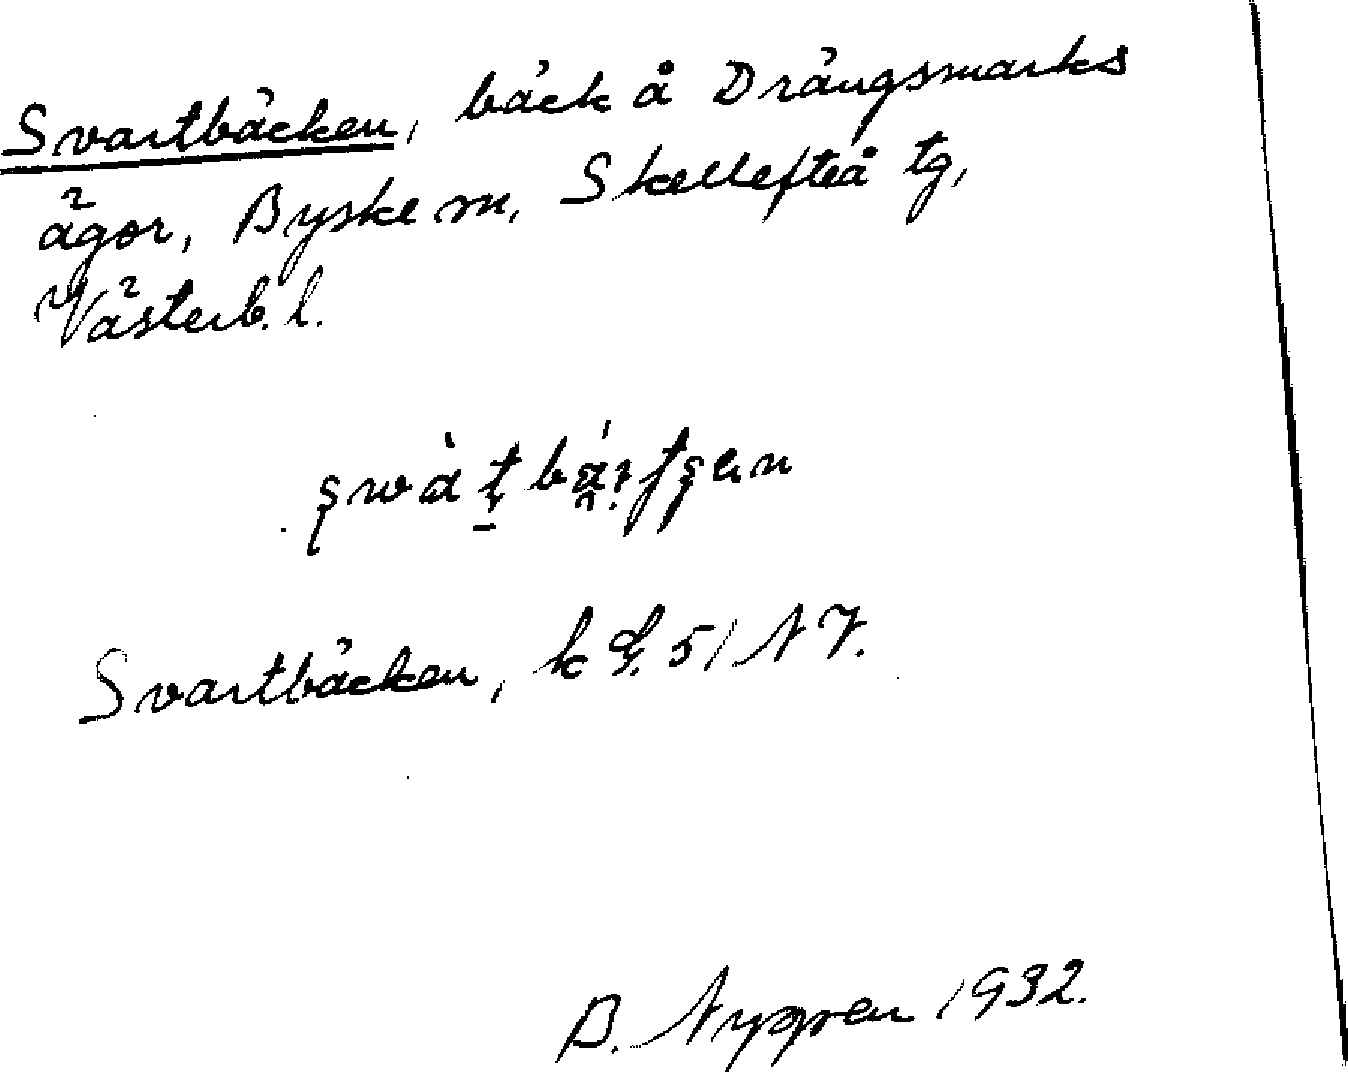 Svartbäcken, bäck å Drängsmarks
ägor, Byske sn, Skellefteå tg,
Västerb. l.
Svartbäcken, k 51 NV.
B. Nygren 1932.